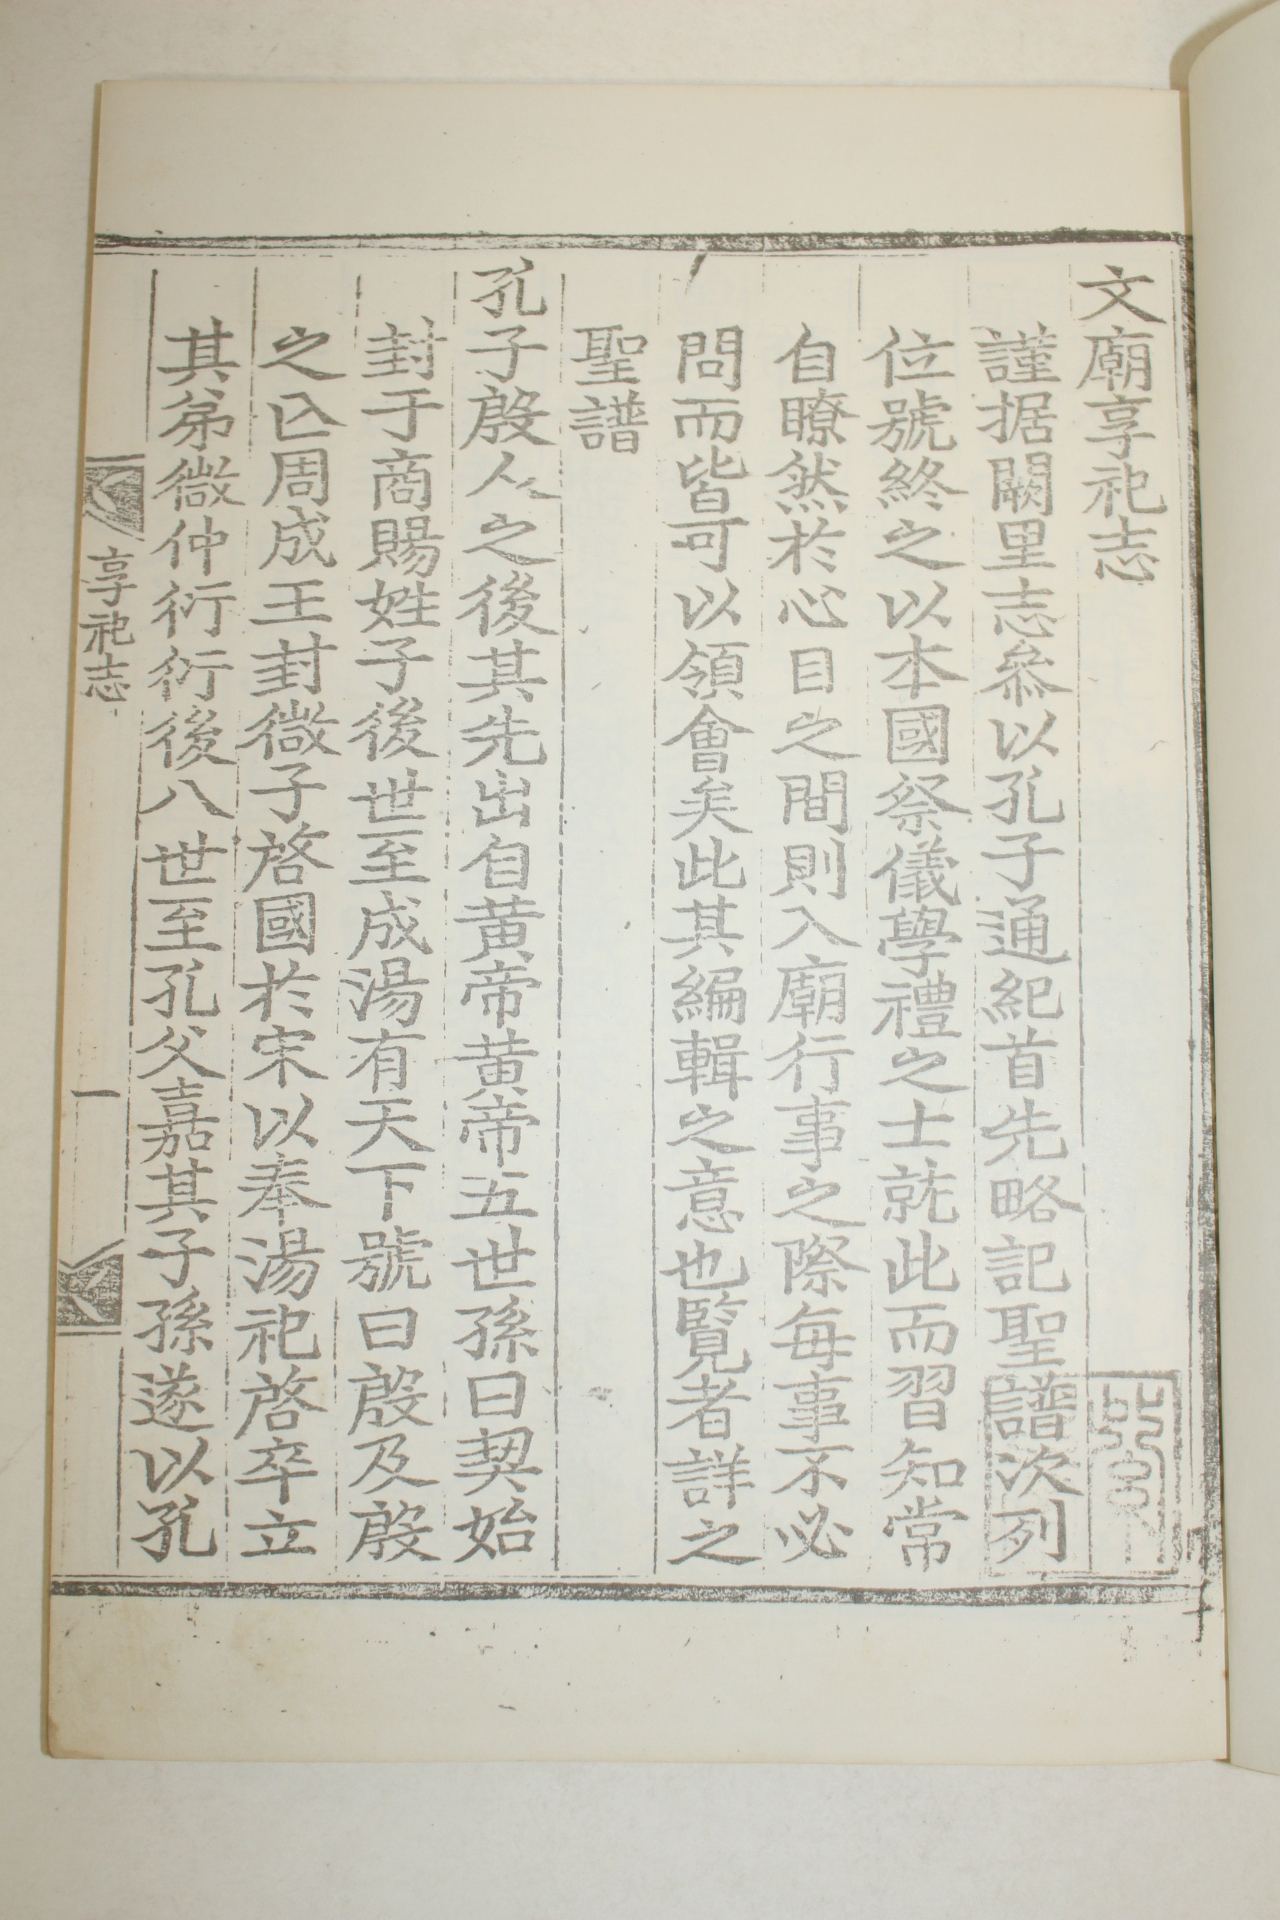 文廟享祀志
謹据闕里志參以孔子通紀首先略記聖譜次列
位號終之以本國祭儀學禮之士就此而習知常
自瞭然於心目之間則入廟行事之際每事不必
問而皆可以領會矣此其編輯之意也覽者詳之
聖譜
孔子殷人之後其先出自黃帝黃帝五世孫曰契始
封于商賜姓子後世至成湯有天下號曰殷及殷
之亾周成王封微子啓國於宋以奉湯祀啓卒立
其弟微仲衍衍後八世至孔父嘉其子孫遂以孔
享祀志
一